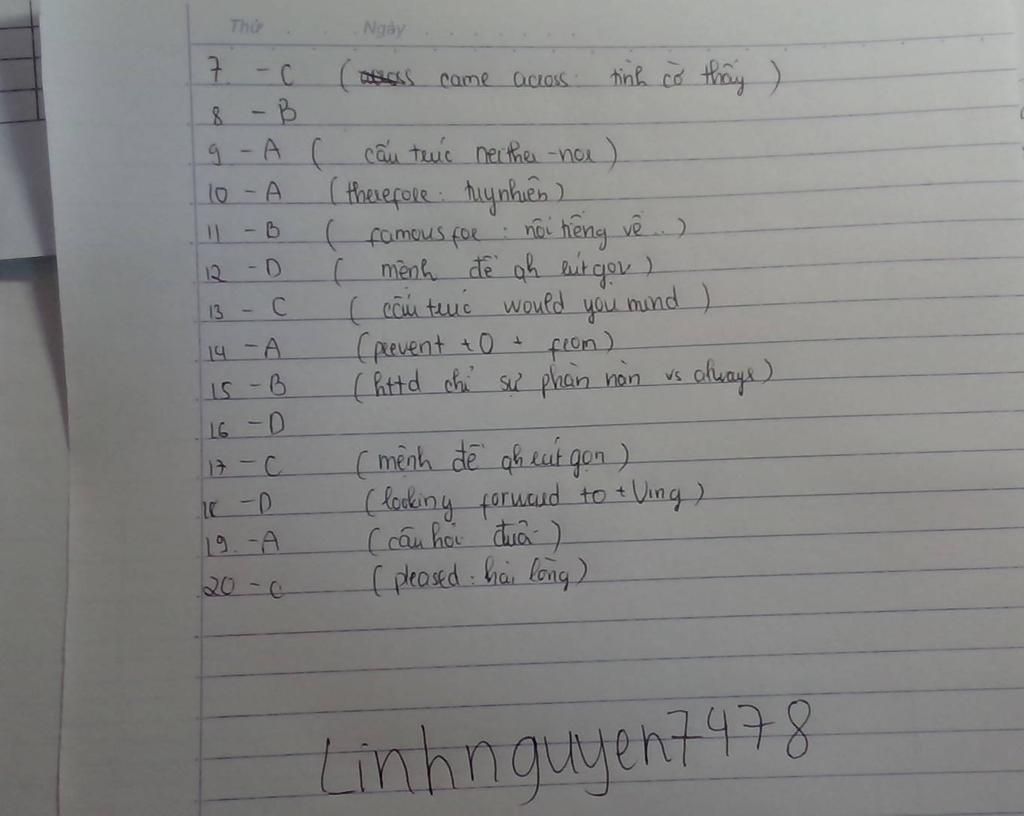 Thứ Ngày
7. - C ( came across: tình cờ thấy )
8 - B
9 - A ( cấu trúc neither-nor )
10 - A (therefore: tuy nhiên)
11 - B ( famous for : nổi tiếng về.. )
12 - D ( mệnh đề qh rút gọn )
13 - C ( cấu trúc would you mind )
14 - A (prevent + O + from)
15 - B (httd chỉ sự phàn nàn vs always)
16 - D
17 - C (mệnh đề qh rút gọn)
18 - D (looking forward to + Ving)
19. - A (câu hỏi đuôi)
20 - C (pleased: hài lòng)
Linhnguyen7478